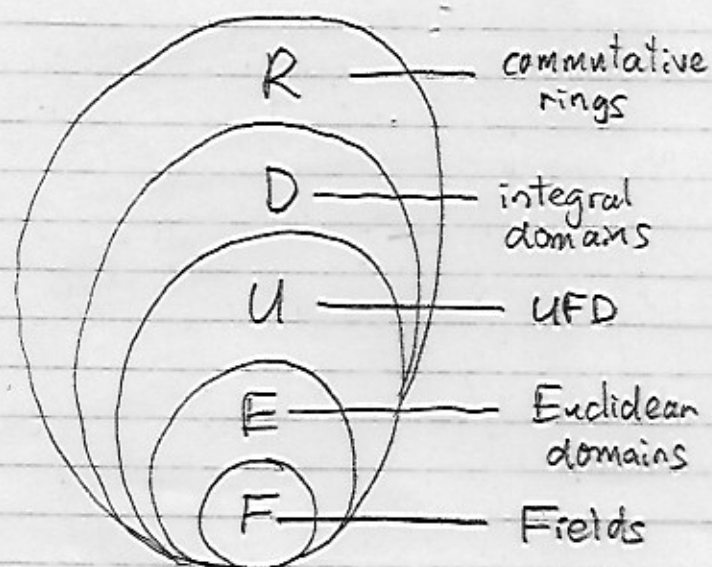 R
commutative
rings
D
integral
domains
U
UFD
E
Euclidean
domains
F
Fields